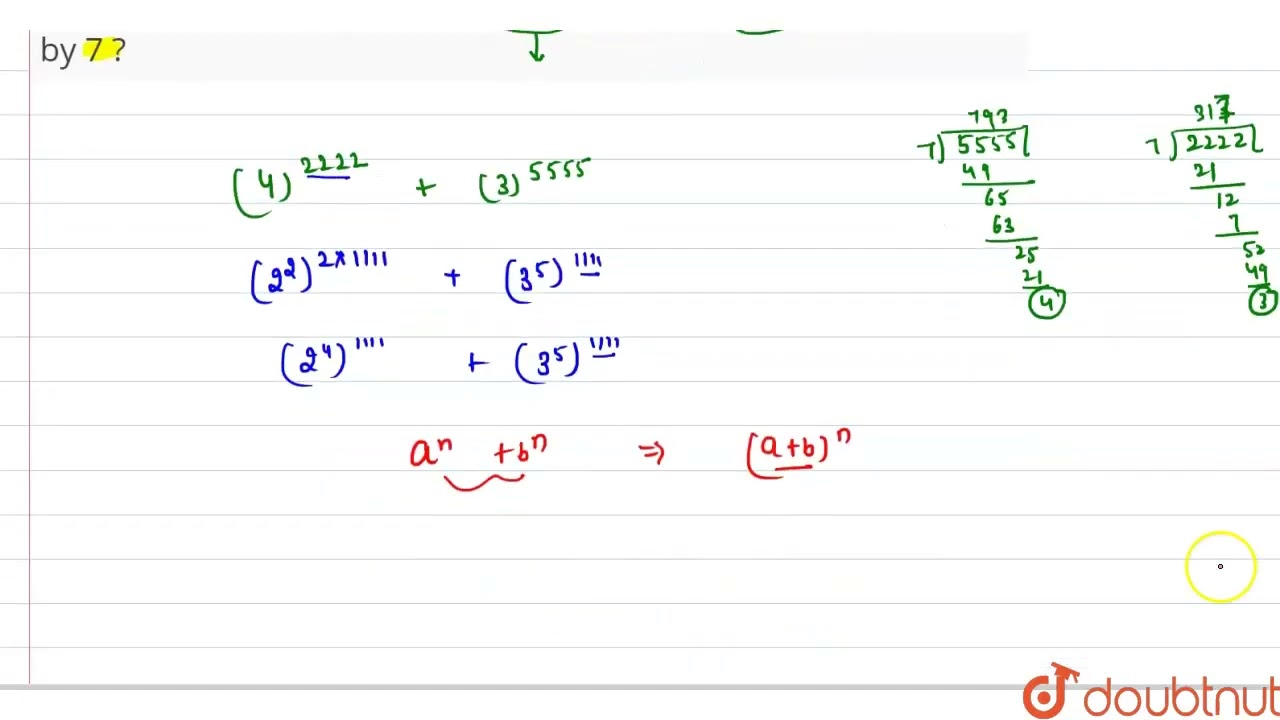 by 7 ?
(4)^2222 + (3)^5555
(2²)^2×1111 + (3⁵)^1111
(2⁴)^1111 + (3⁵)^1111
aⁿ + bⁿ ⇒ (a+b)ⁿ
793
7)5555(
49
65
63
25
21
4
317
7)2222(
21
12
7
52
49
3
doubtnut